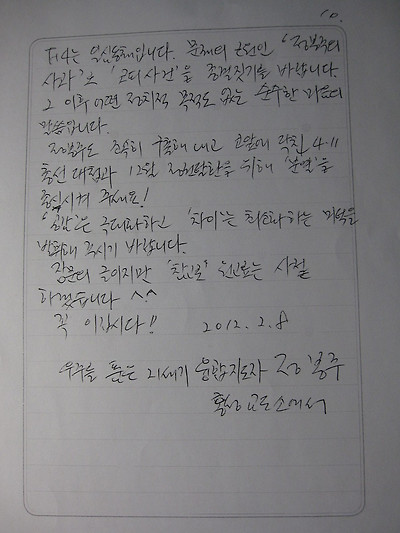 10.
F4는 일심동체입니다. 문제의 근원인 '정봉주의
사과'로 '코피사건'을 종결짓기를 바랍니다.
그 이후 어떤 정치적 목적도 없는 순수한 마음의
말씀입니다.
정봉주도 조속히 구출해 내고 코앞에 닥친 4·11
총선 대첩과 12월 정권탈환을 위해 '분열'을
종식시켜 주세요!
'공감'은 극대화하고 '차이'는 최소화하는 미덕을
발휘해 주시기 바랍니다.
장문의 글이지만 '참고로' 원고료는 사절
하겠습니다 ^.^
꼭 이깁시다!! 2012. 2. 8
우주를 품은 21세기 융합지도자 정봉주
홍성교도소에서